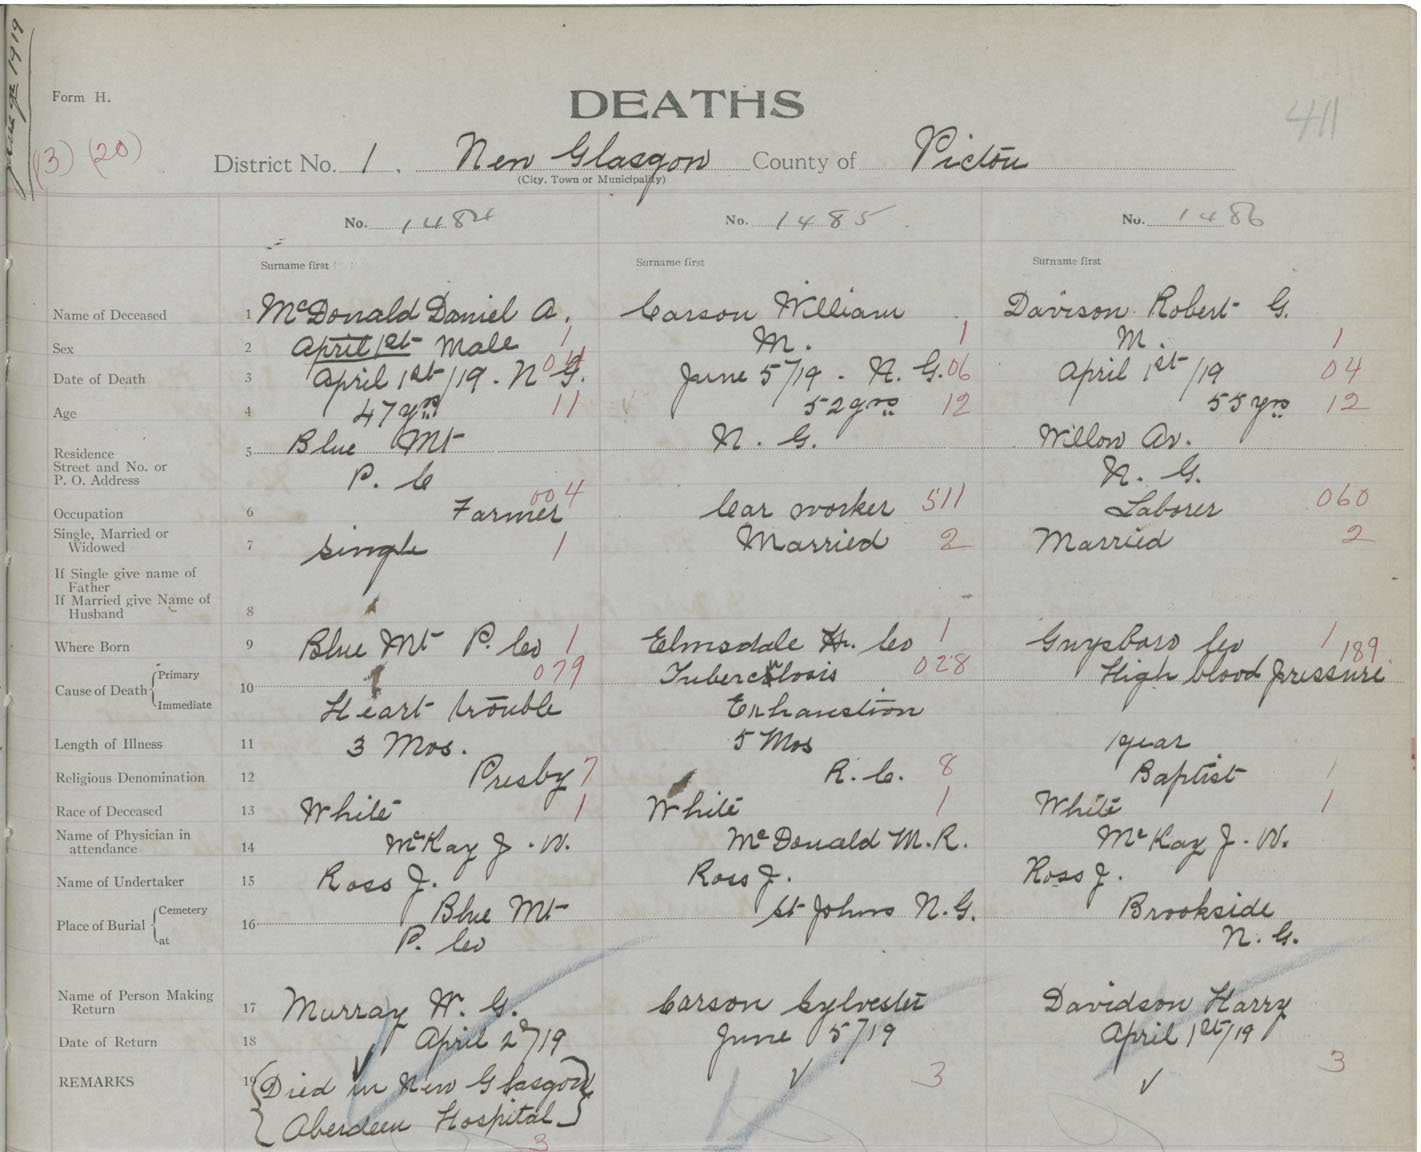 Form H.
DEATHS
411
(13) (20)
District No. 1. New Glasgow County of Pictou
(City, Town or Municipality)
No. 1484 No. 1485 No. 1486
Surname first Surname first Surname first
Name of Deceased 1 McDonald Daniel A. Carson William Davison Robert G.
Sex 2 April 1st Male 1 M. 1 M. 1
Date of Death 3 April 1st/19. N G. 04 June 5/19. N. G. 06 April 1st/19 04
Age 4 47 yrs 11 52 yrs 12 55 yrs 12
Residence 5 Blue Mt N. G. Willow Av.
Street and No. or
P. O. Address P. C N. G.
Occupation 6 Farmer 004 Car worker 511 Laborer 060
Single, Married or
Widowed 7 single 1 Married 2 Married 2
If Single give name of
Father
If Married give Name of
Husband 8
Where Born 9 Blue Mt P. Co 1 Elmsdale H. Co 1 Guysboro Co 1
Cause of Death Primary 10 079 Tuberclosis 028 High blood pressure 189
Immediate Heart trouble Exhaustion
Length of Illness 11 3 Mos. 5 Mos 1 year
Religious Denomination 12 Presby 7 R. C. 8 Baptist 1
Race of Deceased 13 White 1 White 1 White 1
Name of Physician in
attendance 14 McKay J. W. McDonald M. R. McKay J. W.
Name of Undertaker 15 Ross J. Ross J. Ross J.
Place of Burial Cemetery 16 Blue Mt St Johns N. G. Brookside
at P. Co N. G.
Name of Person Making
Return 17 Murray W. G. Carson Sylvester Davidson Harry
Date of Return 18 April 2nd/19 June 5/19 April 1st/19
REMARKS 19 {Died in New Glasgow} 3 3
{Aberdeen Hospital}
3